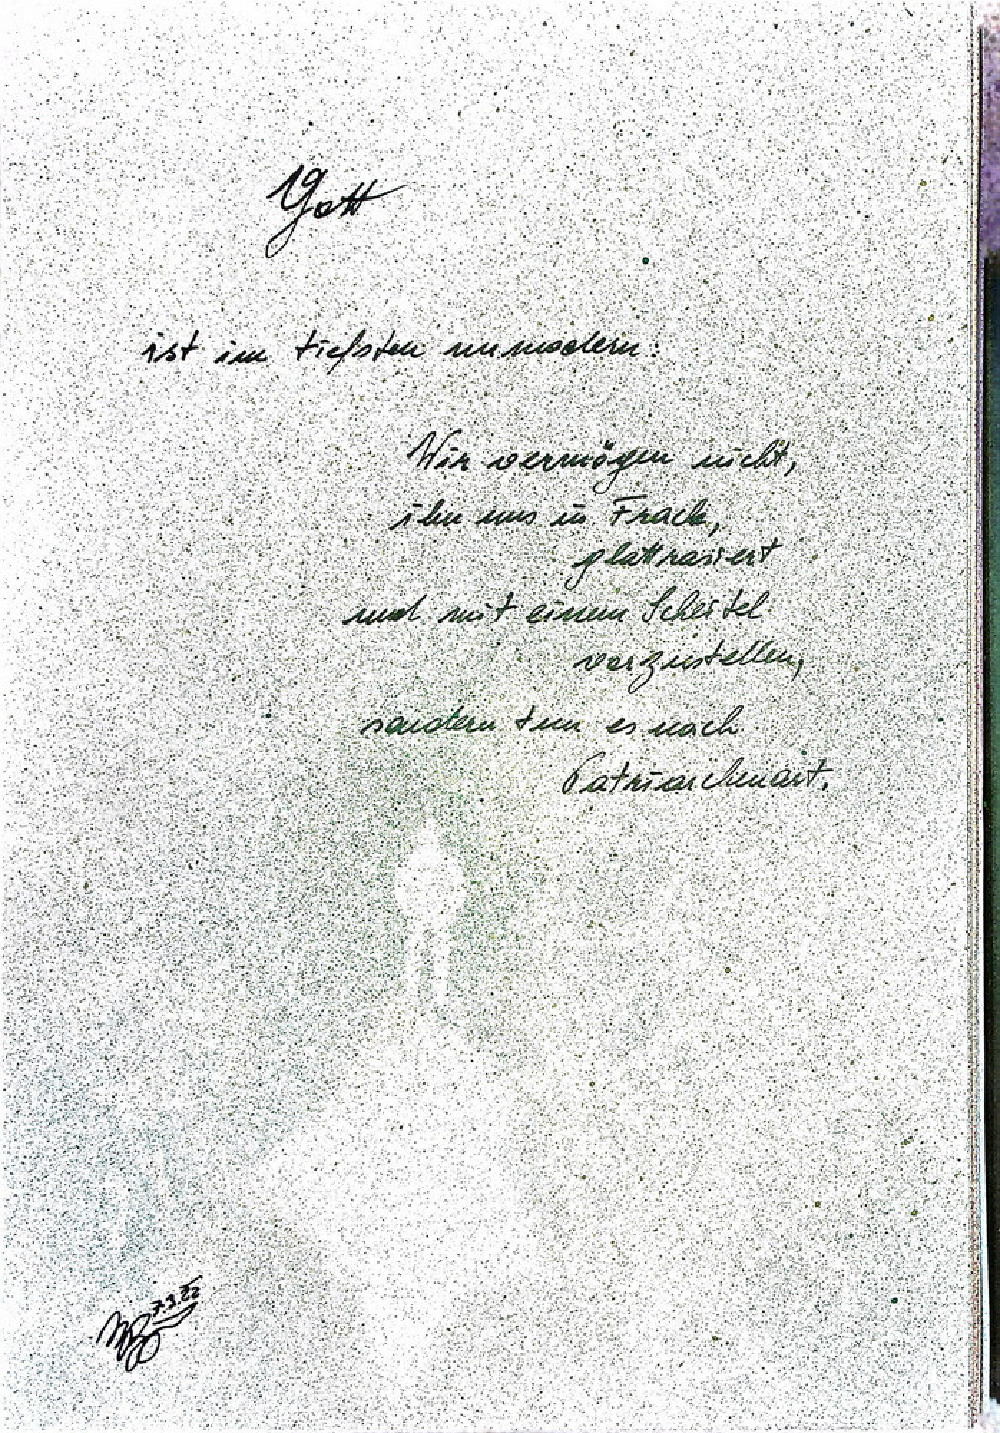 Gott
ist im tiefsten unmodern:
Wir vermögen nicht,
ihn uns in Frack,
glattrasiert
und mit einem Scheitel
vorzustellen,
sondern tun es nach
Patriarchenart.
7.3.22